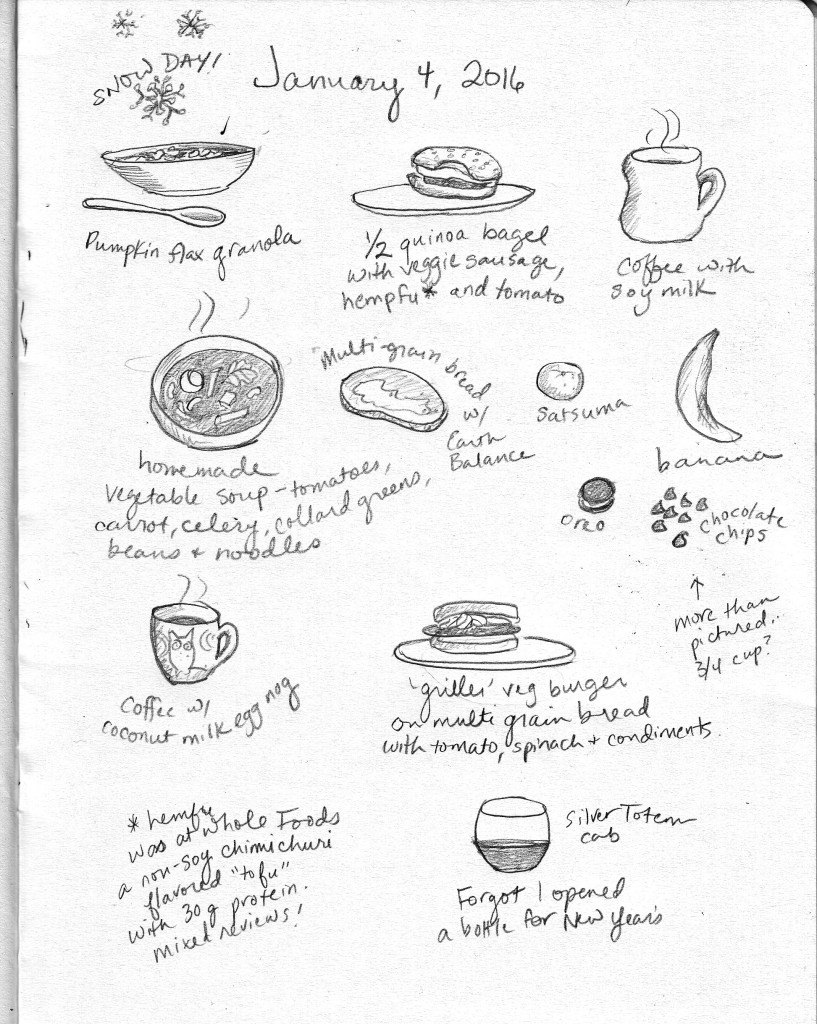 SNOW DAY!
January 4, 2016
Pumpkin flax granola
1/2 quinoa bagel
with veggie sausage,
hempfu* and tomato
coffee with
soy milk
Multi-grain bread
w/
Earth
Balance
Satsuma
banana
homemade
vegetable soup - tomatoes,
carrot, celery, collard greens,
beans + noodles
oreo
chocolate
chips
↑
more than
pictured..
3/4 cup?
Coffee w/
coconut milk egg nog
'griller' veg burger
on multi grain bread
with tomato, spinach + condiments.
* hemfu
was at whole Foods
a non-soy chimichuri
flavored "tofu"
with 30g protein.
mixed reviews!
Silver Totem
cab
Forgot I opened
a bottle for New Year's